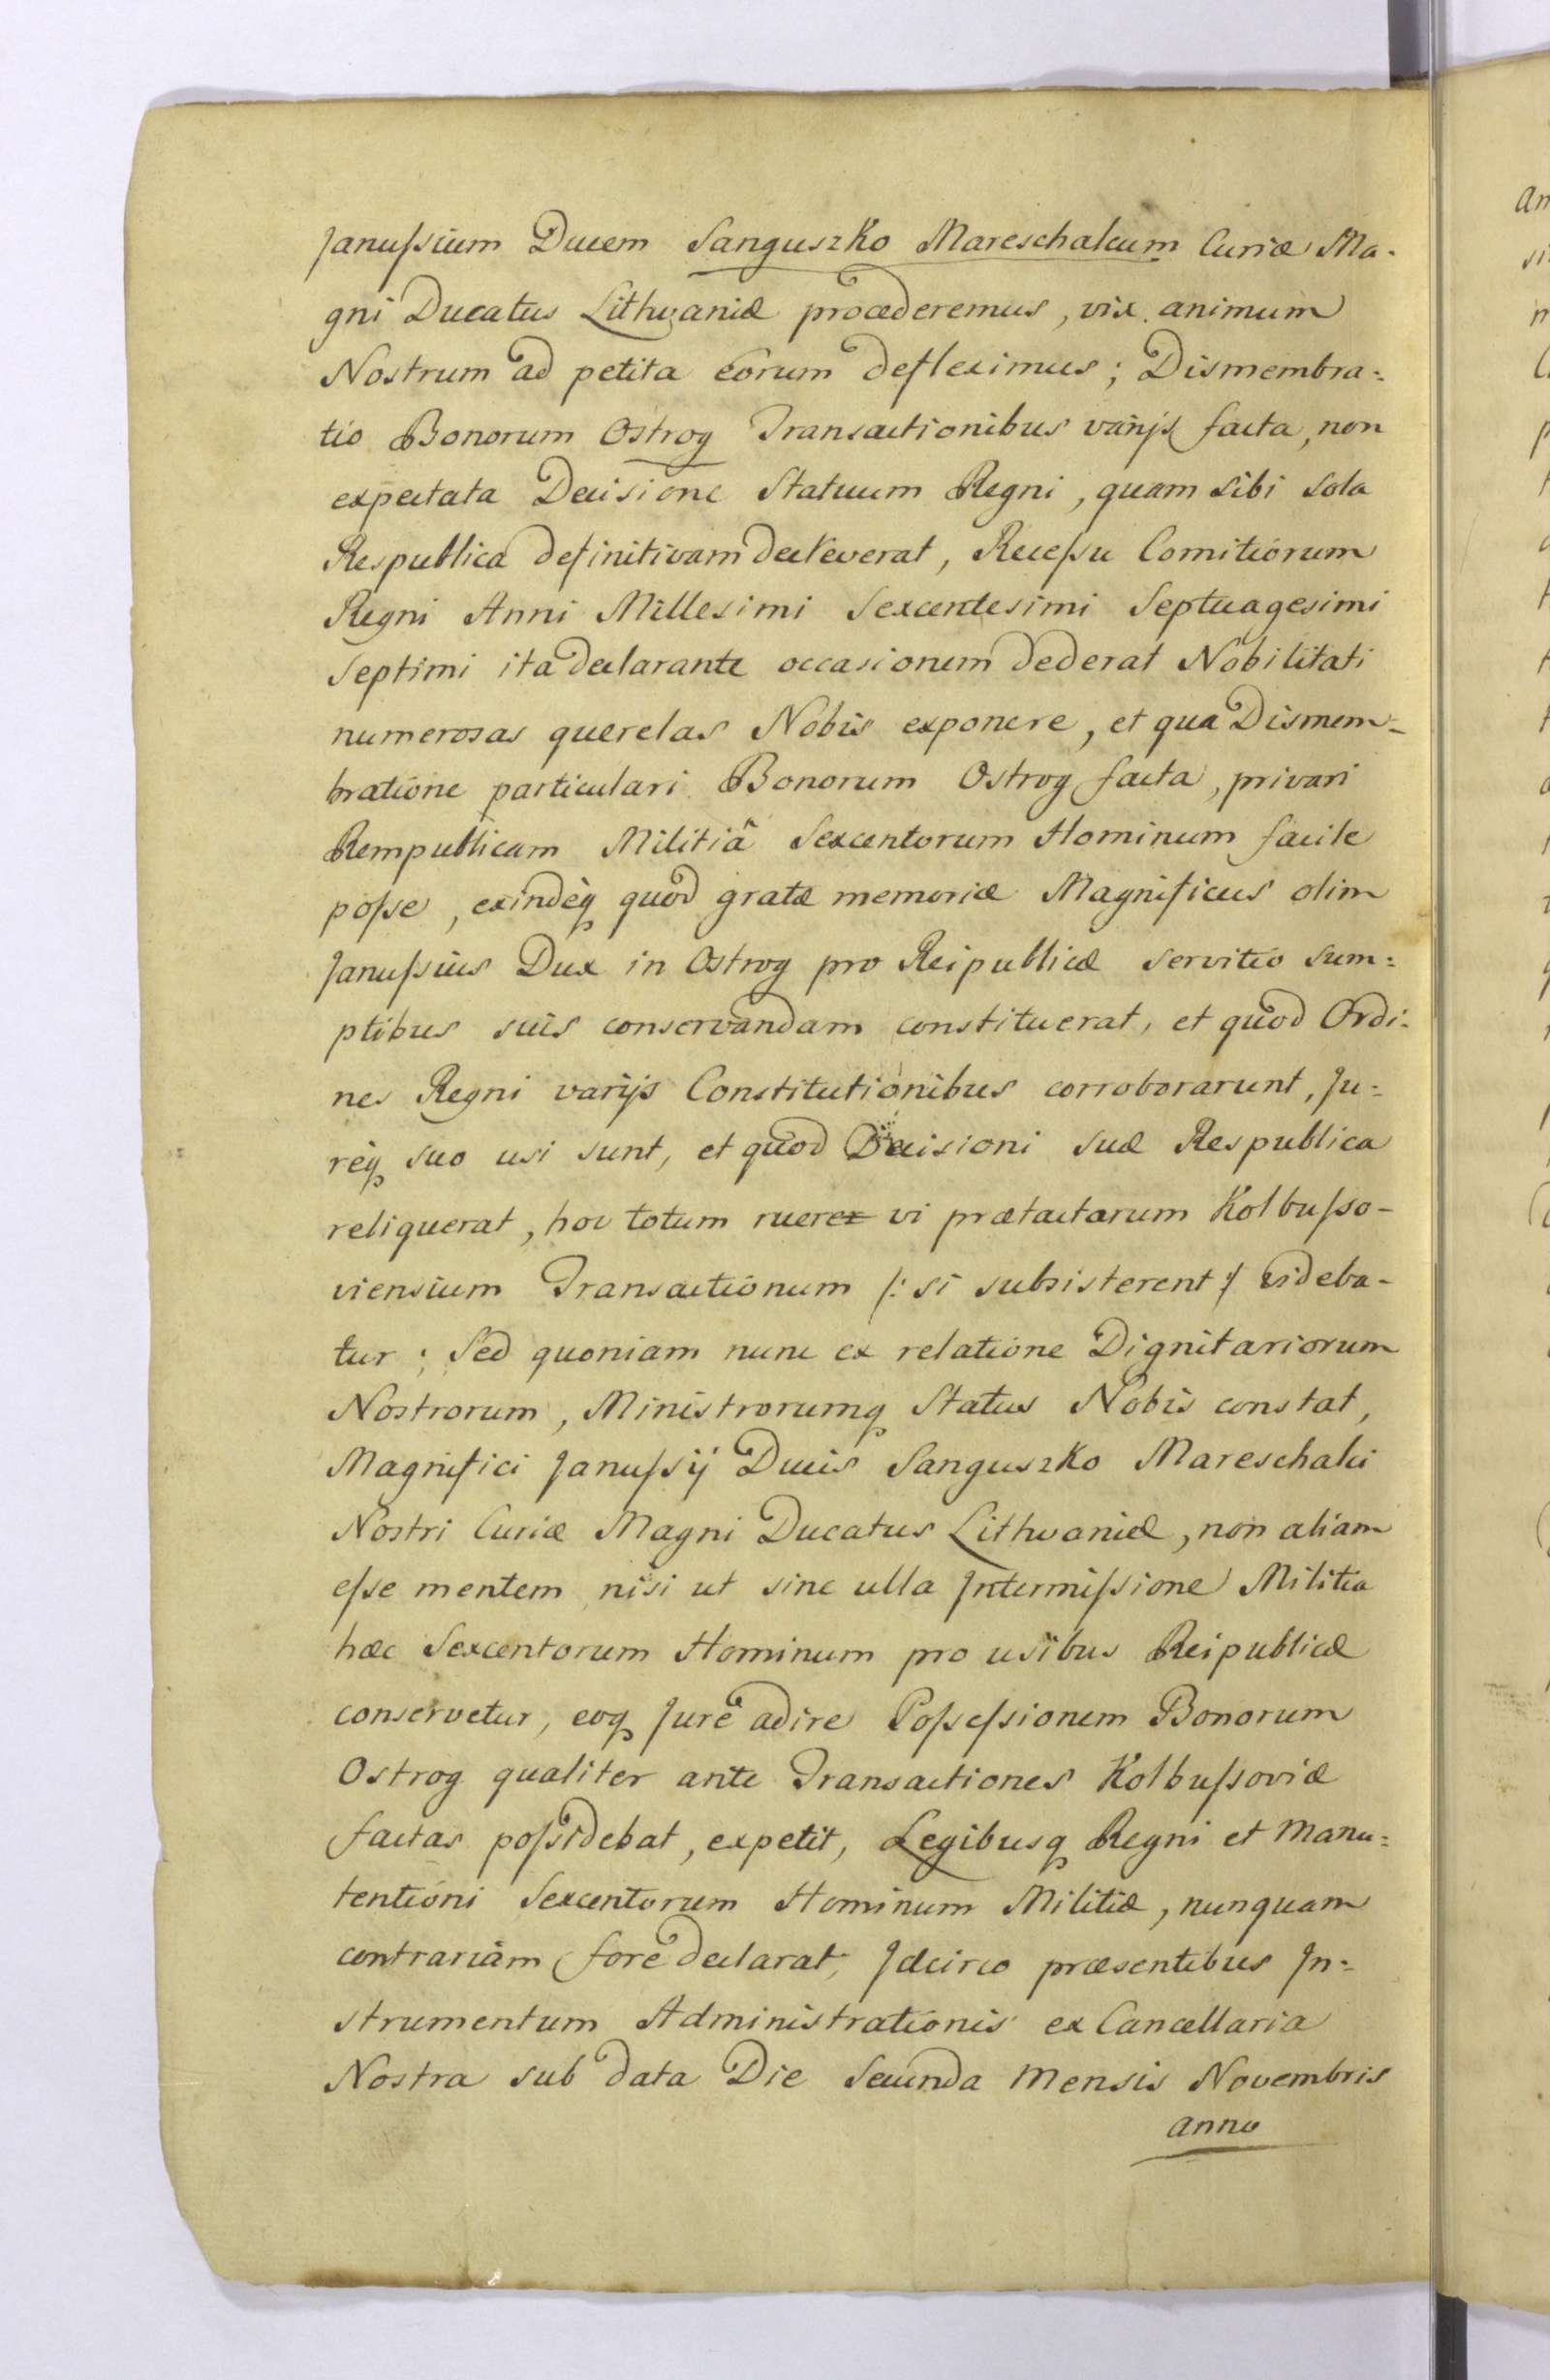 Januſsium Ducem Sanguszko Mareschalcum Curiæ Ma-
gni Ducatus Lithvaniæ procederemus, vix animum
Nostrum ad petita eorum defleximus; Dismembra=
tio Bonorum Ostrog Transactionibus varijs facta, non
expectata Decisione Statuum Regni, quam sibi sola
Respublica definitivam decreverat, Receſsu Comitiorum
Regni Anni Millesimi Sexcentesimi Septuagesimi
Septimi ita declarante occasionem dederat Nobilitati
numerosas querelas Nobis exponere, et qua Dismem-
bratione particulari Bonorum Ostrog facta, privari
Rempublicam Militiâ Sexcentorum Hominum facile
poſse, exindèq quod gratæ memoriæ Magnificus olim
Januſsius Dux in Ostrog pro Reipublicæ servitio sum=
ptibus suis conservandam constituerat, et quod Ordi=
nes Regni varijs Constitutionibus corroborarunt, Ju=
req suo usi sunt, et quod Decisioni suæ Respublica
reliquerat, hoc totum ruere vi prætactarum Kolbuſso-
viensium Transactionum /: si subsisterent :/ videba-
tur; Sed quoniam nunc ex relatione Dignitariorum
Nostrorum, Ministrorumq Status Nobis constat,
Magnifici Januſsij Ducis Sanguszko Mareschalci
Nostri Curiæ Magni Ducatus Lithvaniæ, non aliam
eſse mentem nisi ut sine ulla Intermiſsione Militia
hæc Sexcentorum Hominum pro usibus Reipublicæ
conservetur, eoq Jure adire Poſseſsionem Bonorum
Ostrog qualiter ante Transactiones Kolbuſsoviæ
factas poſsidebat, expetit, Legibusq Regni et Manu=
tentioni Sexcentorum Hominum Militiæ, nunquam
contrariam fore declarat, Idcirco præsentibus In=
strumentum Administrationis ex Cancellaria
Nostra sub data Die Secunda Mensis Novembris
anno